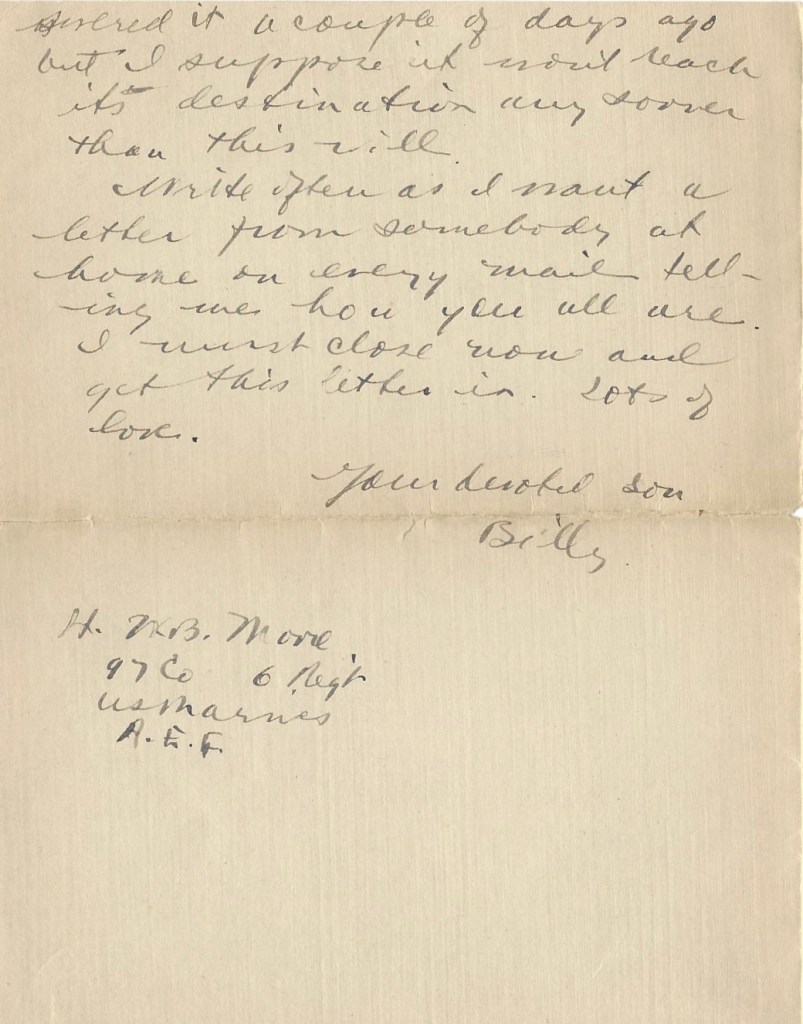 swered it a couple of days ago
but I suppose it wont reach
its destination any sooner
than this will.
Write often as I want a
letter from somebody at
home on every mail tell-
ing me how you all are.
I must close now and
get this letter in. Lots of
love.
Your devoted son,
Billy.
H. B. More
97 Co 6 Regt
US Marines
A. E. F.